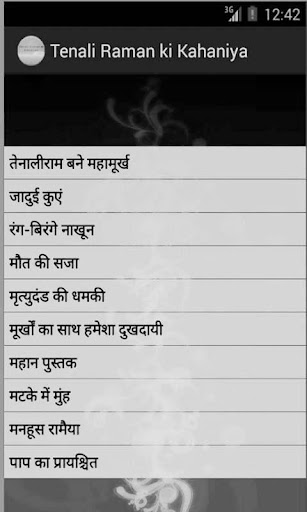 3G 12:42
Tenali Raman ki Kahaniya
तेनालीराम बने महामूर्ख
जादुई कुएं
रंग-बिरंगे नाखून
मौत की सजा
मृत्युदंड की धमकी
मूर्खों का साथ हमेशा दुखदायी
महान पुस्तक
मटके में मुंह
मनहूस रामैया
पाप का प्रायश्चित